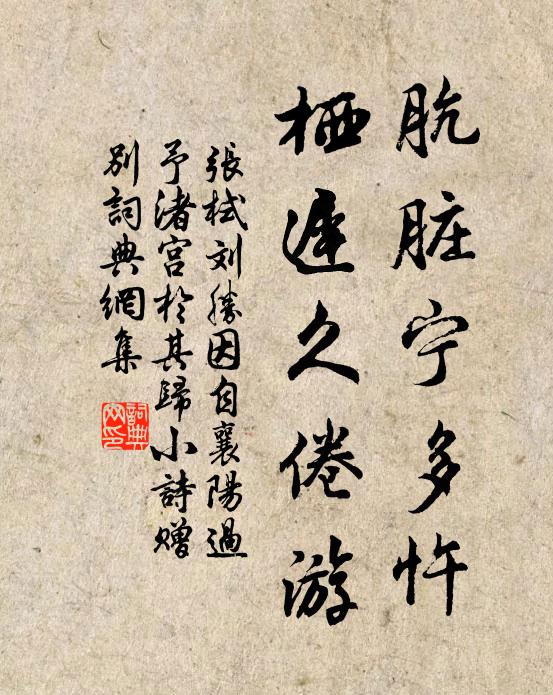 肮脏宁多忤
栖遲久倦游
張栻刘勝因自襄陽過
予渚宫於其歸小詩赠
别詞典網集
詞典
网印